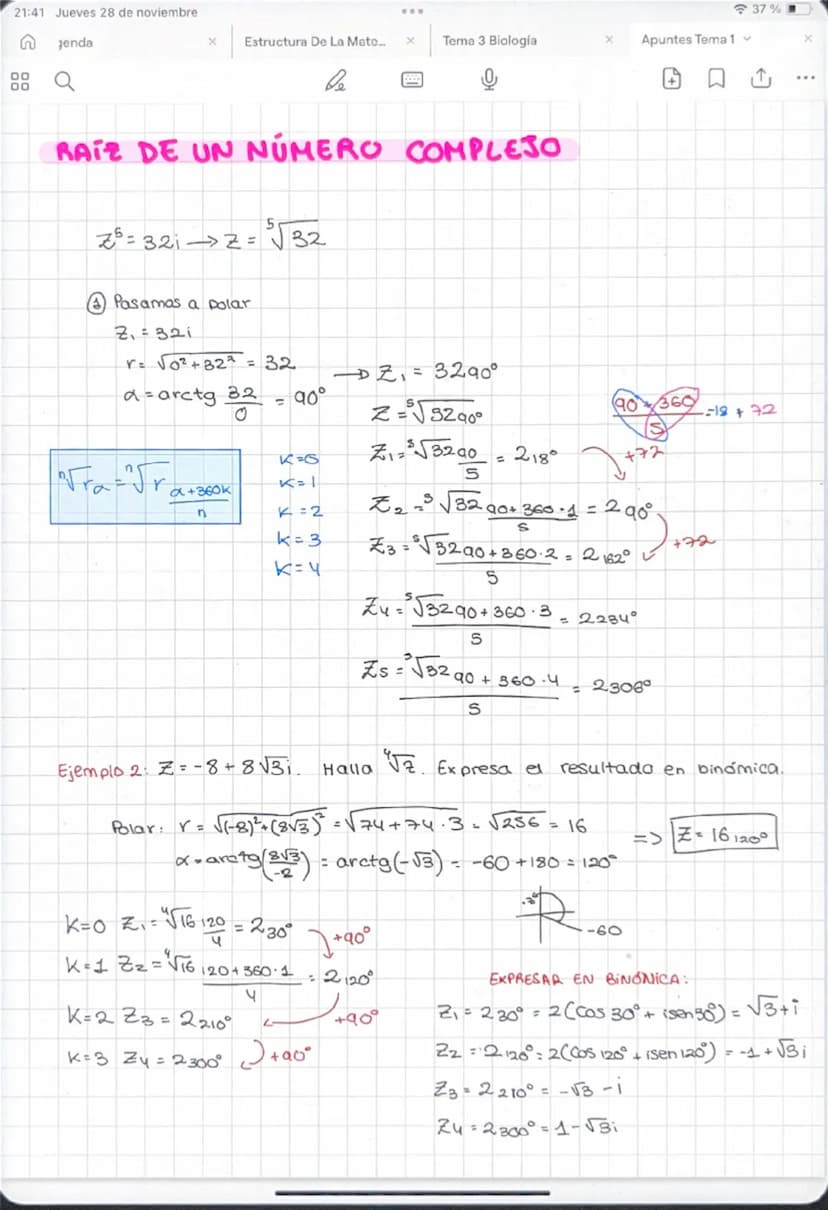 21:41 Jueves 28 de noviembre
37 %
genda
Estructura De La Mate...
Tema 3 Biología
Apuntes Tema 1
RAÍZ DE UN NÚMERO COMPLEJO
Z⁵ = 32i → Z = ⁵√32
① Pasamos a polar
Z₁ = 32i
r = √0²+32² = 32
→ Z₁ = 32 90°
α = arctg 32/0 = 90°
Z = ⁵√32 90°
90 + 360 / 5 = 18 + 72
ⁿ√r α = ⁿ√r α+360K / n
K=0
K=1
K=2
K=3
K=4
Z₁ = ⁵√32 90/5 = 2 18°
+72
Z₂ = ⁵√32 90+360·1 / 5 = 2 90°
Z₃ = ⁵√32 90+360·2 / 5 = 2 162°
+72
Z₄ = ⁵√32 90+360·3 / 5 = 2 234°
Z₅ = ⁵√32 90+360·4 / 5 = 2 306°
Ejemplo 2: Z = -8 + 8√3i. Halla ⁴√Z. Expresa el resultado en binómica.
Polar: r = √(-8)²+(8√3)² = √74+74·3 = √256 = 16
=> Z = 16 120°
α = arctg(8√3/-2) = arctg(-√3) = -60 + 180 = 120°
-60
K=0 Z₁ = ⁴√16 120/4 = 2 30°
+90°
K=1 Z₂ = ⁴√16 120+360·1 / 4 = 2 120°
K=2 Z₃ = 2 210°
+90°
K=3 Z₄ = 2 300°
+90°
EXPRESAR EN BINÓNICA:
Z₁ = 2 30° = 2(cos 30° + isen30°) = √3+i
Z₂ = 2 120° = 2(cos 120° + isen 120°) = -1 + √3i
Z₃ = 2 210° = -√3 - i
Z₄ = 2 300° = 1-√3i